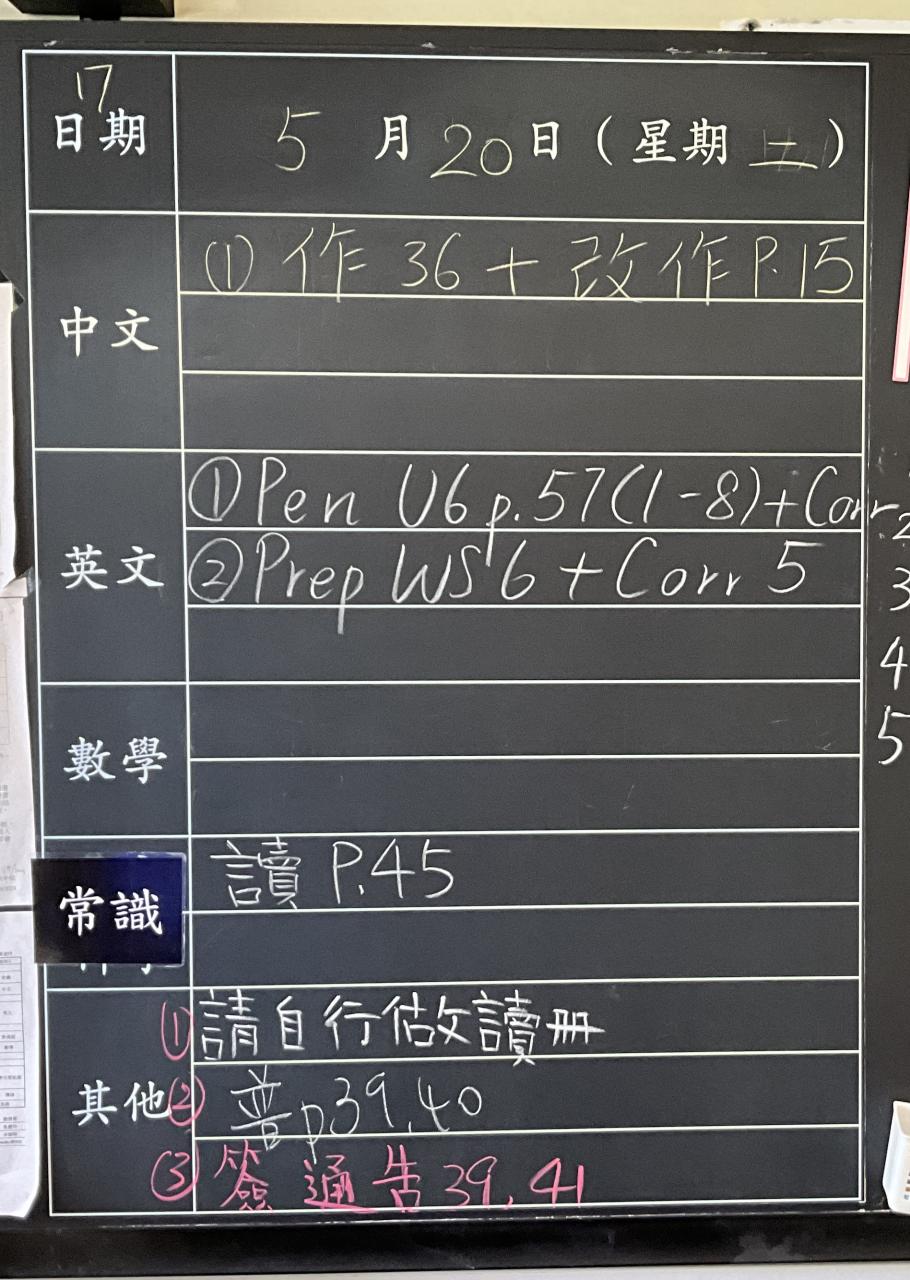 17
日期
5月20日(星期二)
中文
① 作36+改作P.15
英文
①Pen U6 p.57(1-8)+Corr
②Prep WS 6 + Corr 5
數學
常識
讀 P.45
其他
①請自行做讀冊
② 普p39,40
③ 簽通告39,41
2
3
4
5